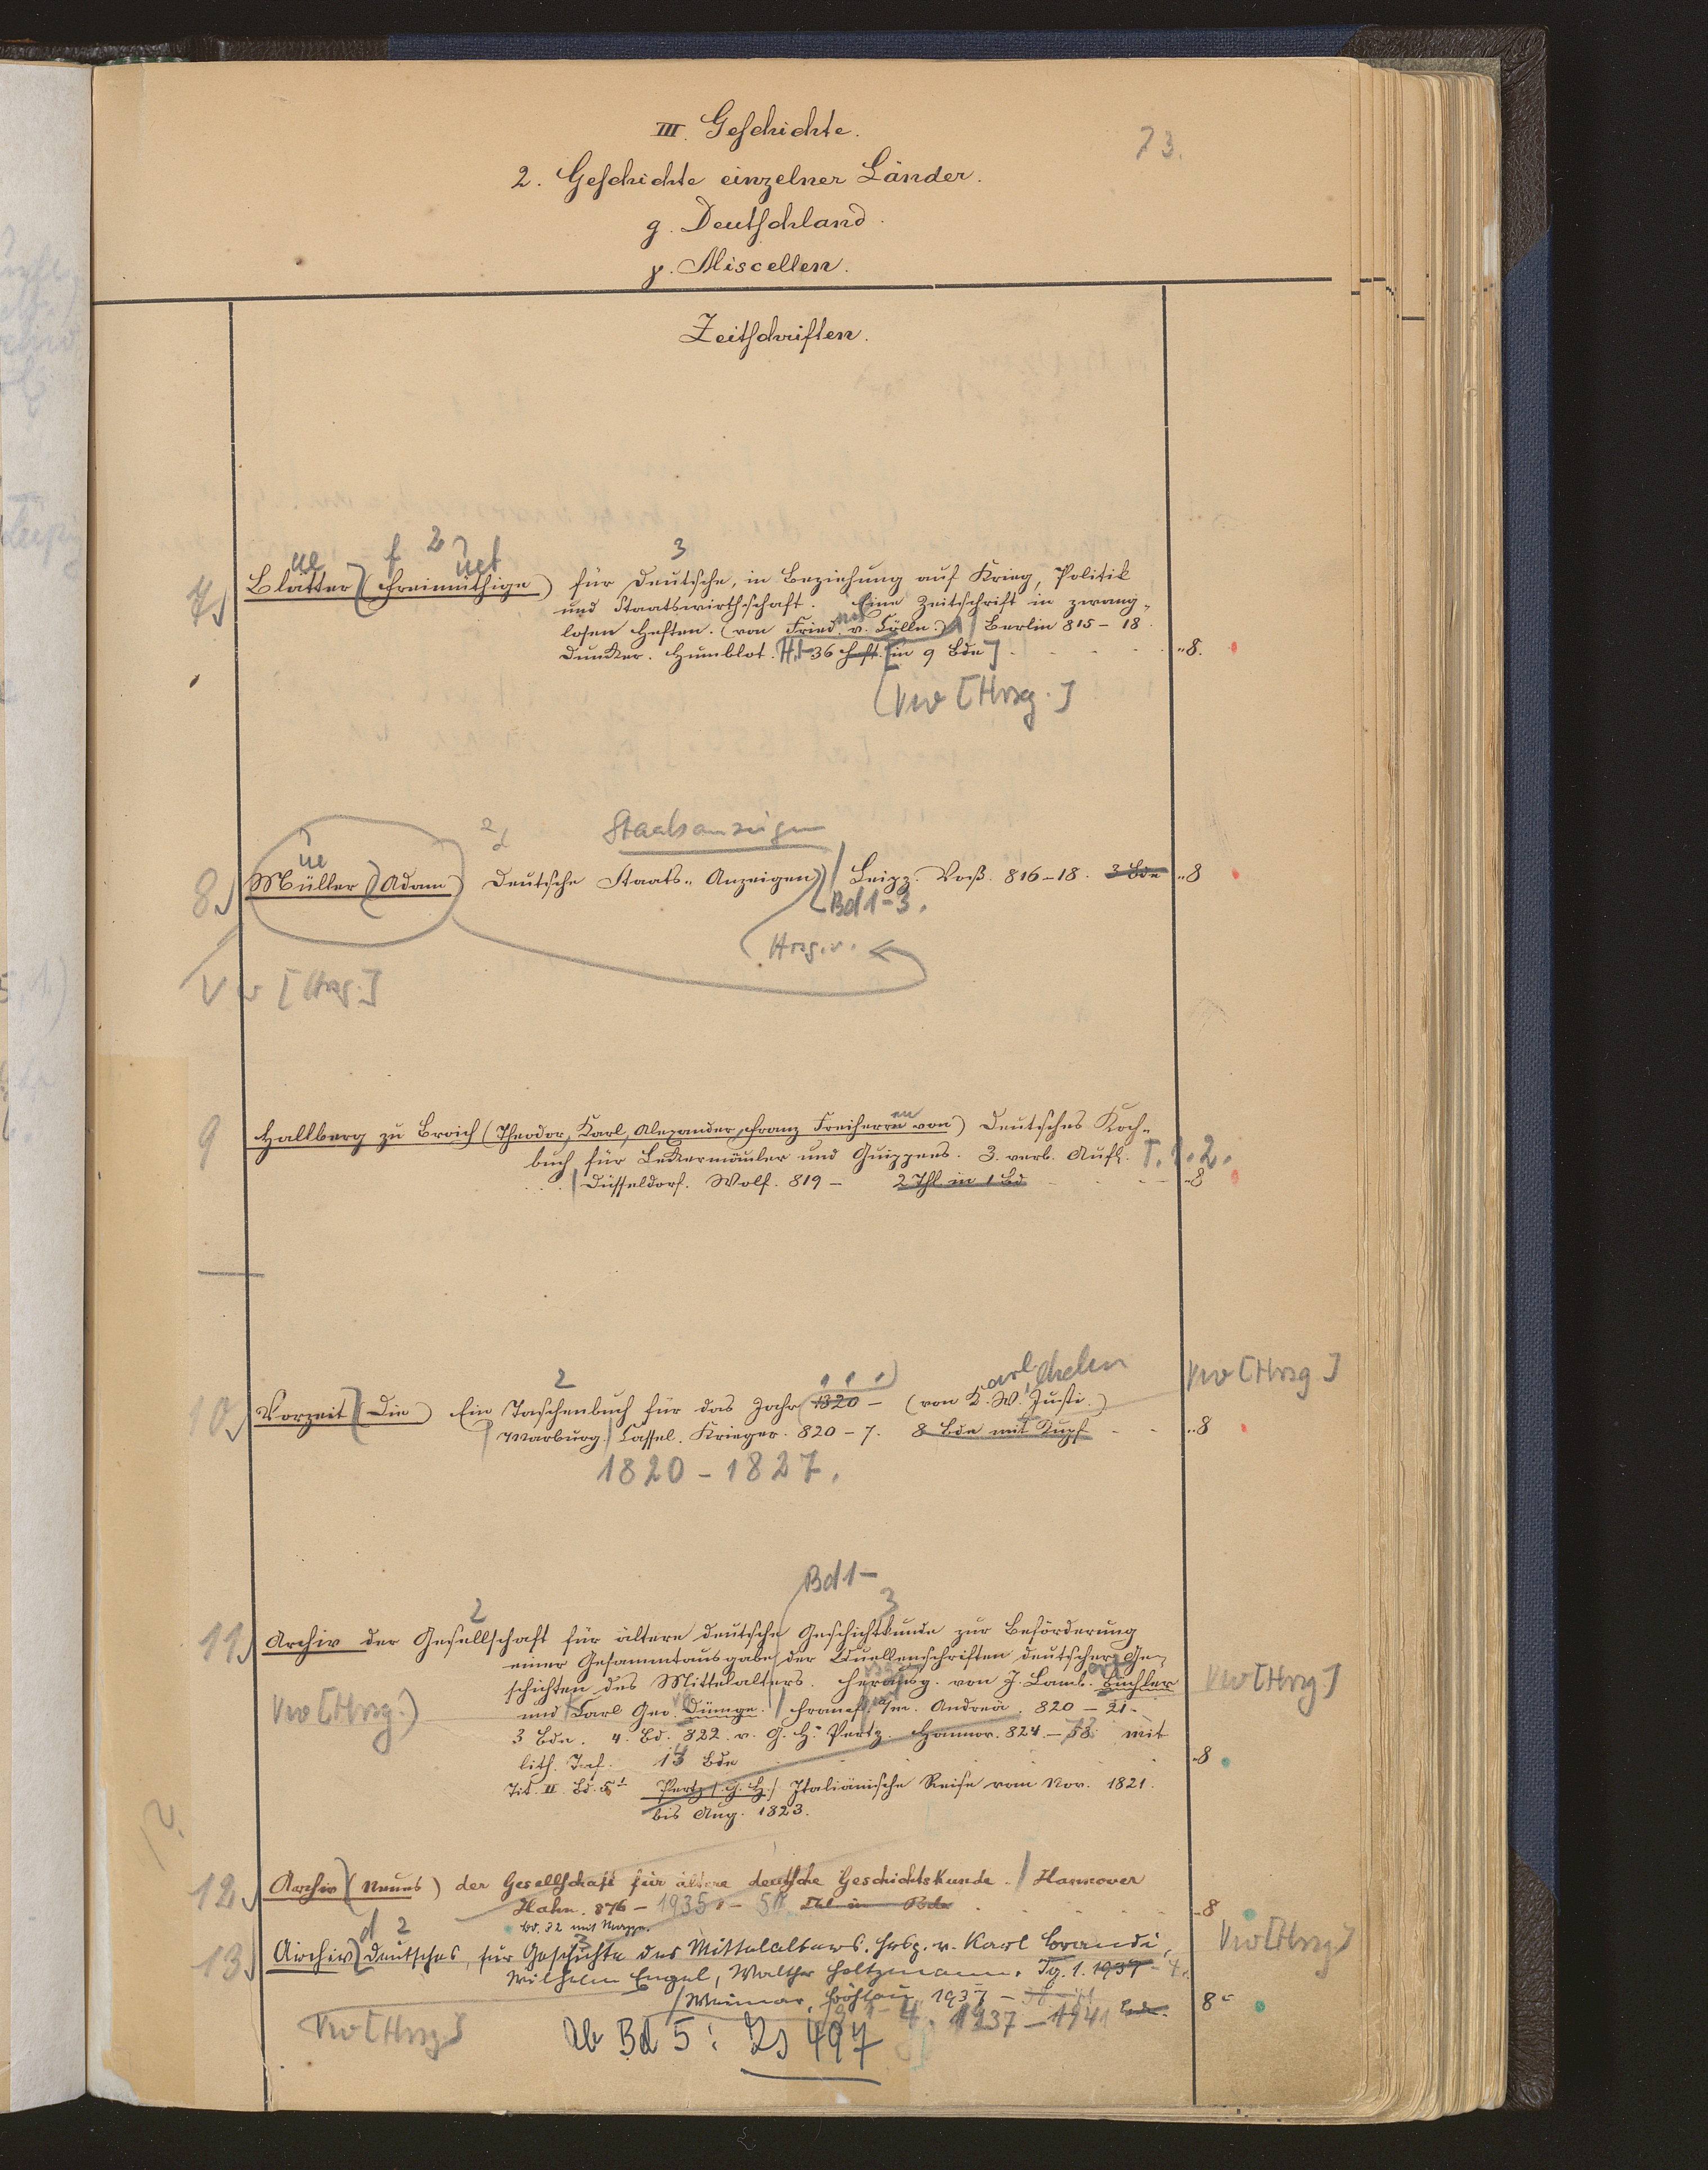 III. Geschichte.
73.
2. Geschichte einzelner Länder.
g. Deutschland.
γ. Miscellen.
Zeitschriften.
ue f 2 uet 3
7.) Blätter (Freimüthige) für Deutsche, in Beziehung auf Krieg, Politik
und Staatswirthschaft. Eine Zeitschrift in zwang-
losen Heften. (von Fried. v. Cölln.) / Berlin 815-18.
Duncker. Humblot. H. 1-36 Heft. [in 9 Bde] 8.
Vw [Hrsg.]
ue 2 d Staatsanzeigen
8.) Müller (Adam) Deutsche Staats-Anzeigen / Leipz. Voß. 816-18. 3 Bde 8
Bd 1-3.
Hrsg. v.
Vw [Hrsg.]
9 Hallberg zu Broich (Theodor, Karl, Alexander, Franz Freiherrn von) Deutsches Koch-
buch für Leckermäuler und Guippees. 3. verb. Aufl. T. 1. 2.
/ Düsseldorf. Wolf. 819 - 2 Thl. in 1 Bd 8
2 arl ilhelm Vw [Hrsg.]
10.) Vorzeit (Die) Ein Taschenbuch für das Jahr 1820 - (von K. W. Justi.)
Marburg. / Cassel. Krieger. 820-7. 8 Bde mit Kupf 8
1820-1827.
Bd 1-
2 3
11.) Archiv der Gesellschaft für ältere deutsche Geschichtkunde zur Beförderung
einer Gesammtausgabe der Quellenschriften deutscher Ge-
schichten des Mittelalters. Herausg. von J. Lamb. Büchler Vw [Hrsg.]
Vw [Hrsg.] und Carl Geo. Dümge. / Francf. a/m. Andreä. 820-21.
3 Bde. 4. Bd. 822. v. G. H. Pertz. Hannov. 824- mit
lith. Taf. Bde 8
Tit. II. Bd. 5t Pertz (G. H.) Italiänische Reise vom Nov. 1821.
bis Aug. 1823.
12.) Archiv (Neues) der Gesellschaft für ältere deutsche Geschichtskunde. / Hannover
Hahn. 876- 1935 Bde 8
Bd. 32 mit Mappe.
d 2 3 Vw [Hrsg.]
13.) Archiv deutsches, für Geschichte des Mittelalters. Hrsg. v. Karl Brandi,
Wilhelm Engel, Walther Holtzmann. Jg. 1. 1937-4.
/ Weimar, Böhlau 1937- Bde. 8°
1-4. 1937-1941
Vw [Hrsg.] Ab Bd 5: Zs 497